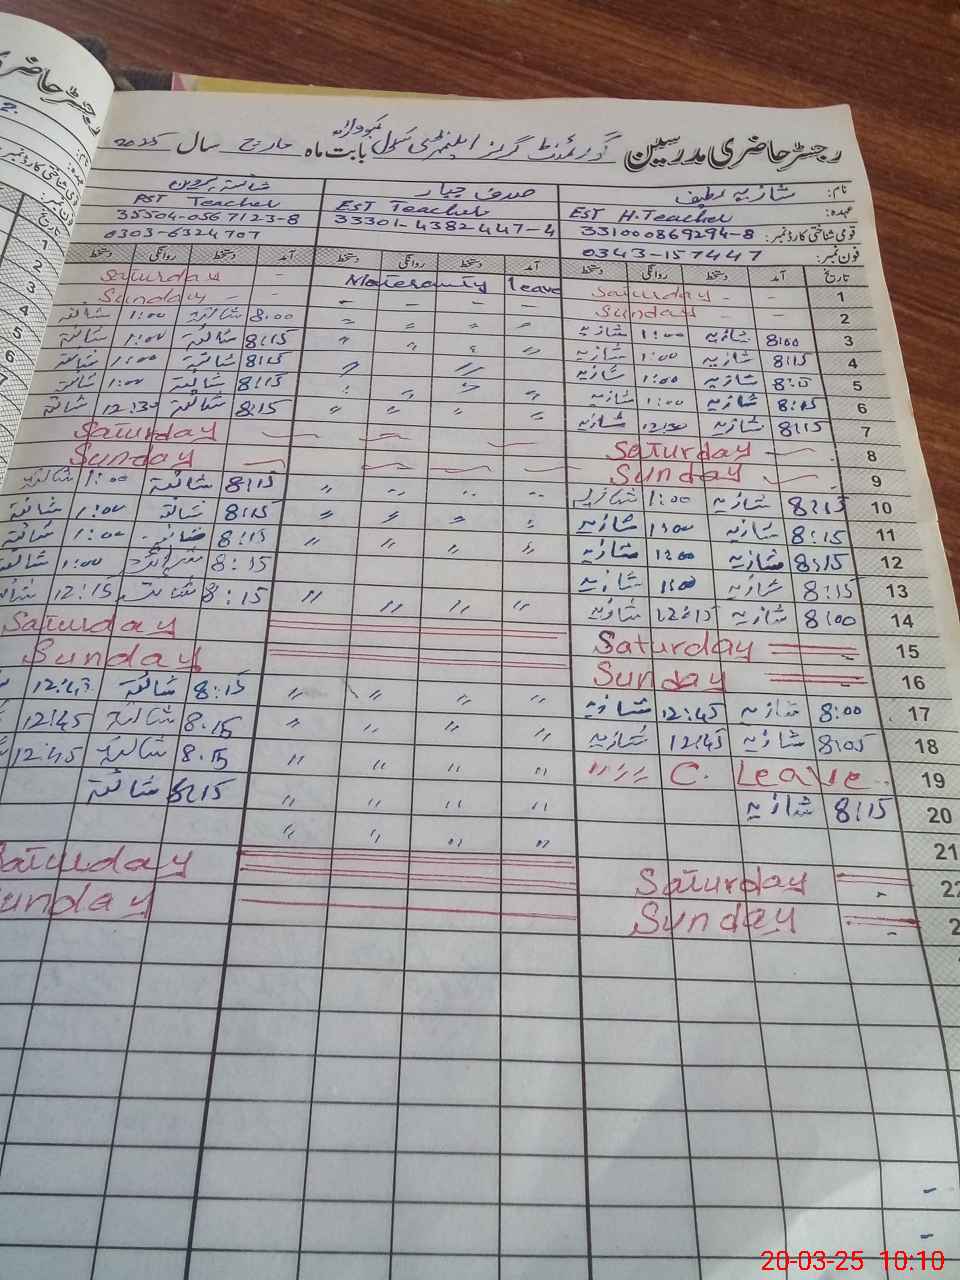 رجسٹر حاضری مدرسین گورنمنٹ گرلز ایلیمنٹری سکول بابت ماہ مارچ سال 2025
نام: شازیہ لطیف صدف جبار شائستہ پروین
عہدہ: EST H.Teacher EST Teacher PST Teacher
قومی شناختی کارڈ نمبر: 331000869294-8 33301-4382447-4 35504-0567123-8
فون نمبر: 0343-157447 0303-6324707
تاریخ آمد دستخط روانگی دستخط آمد دستخط روانگی دستخط آمد دستخط روانگی دستخط
1 Saturday - - Maternity leave Saturday -
2 Sunday - - - - - - Sunday - -
3 8:00 شازیہ 1:00 شازیہ " " " " 8:00 شائستہ 1:00 شائستہ
4 8:15 شازیہ 1:00 شازیہ " " " " 8:15 شائستہ 1:00 شائستہ
5 شازیہ 1:00 شازیہ " " 8:15 شائستہ 1:00 شائستہ
6 8:15 شازیہ 1:00 شازیہ " " " " 8:15 شائستہ 1:00 شائستہ
7 8:15 شازیہ 12:30 شازیہ " " " " 8:15 شائستہ 12:30 شائستہ
8 Saturday Saturday
9 Sunday Sunday
10 8:15 شازیہ 1:00 شازیہ " " " " 8:15 شائستہ 1:00 شائستہ
11 8:15 شازیہ 1:00 شازیہ " " " " 8:15 شائستہ 1:00 شائستہ
12 8:15 شازیہ 1:00 شازیہ " " " " 8:15 1:00 شائستہ
13 8:15 شازیہ 1:00 شازیہ 8:15 1:00 شائستہ
14 8:00 شازیہ 12:15 شازیہ " " " " 8:15 شائستہ 12:15
15 Saturday Saturday
16 Sunday Sunday
17 8:00 شازیہ 12:45 شازیہ " " " " 8:15 شائستہ 12:45
18 8:05 شازیہ 12:45 شازیہ " " " " 8.15 شائستہ 12:45
19 C. Leave " " " " " " 8.15 شائستہ 12:45
20 8:15 شازیہ " " " " 8:15 شائستہ
21 " " " "
22 Saturday Saturday
Sunday Sunday
20-03-25 10:10